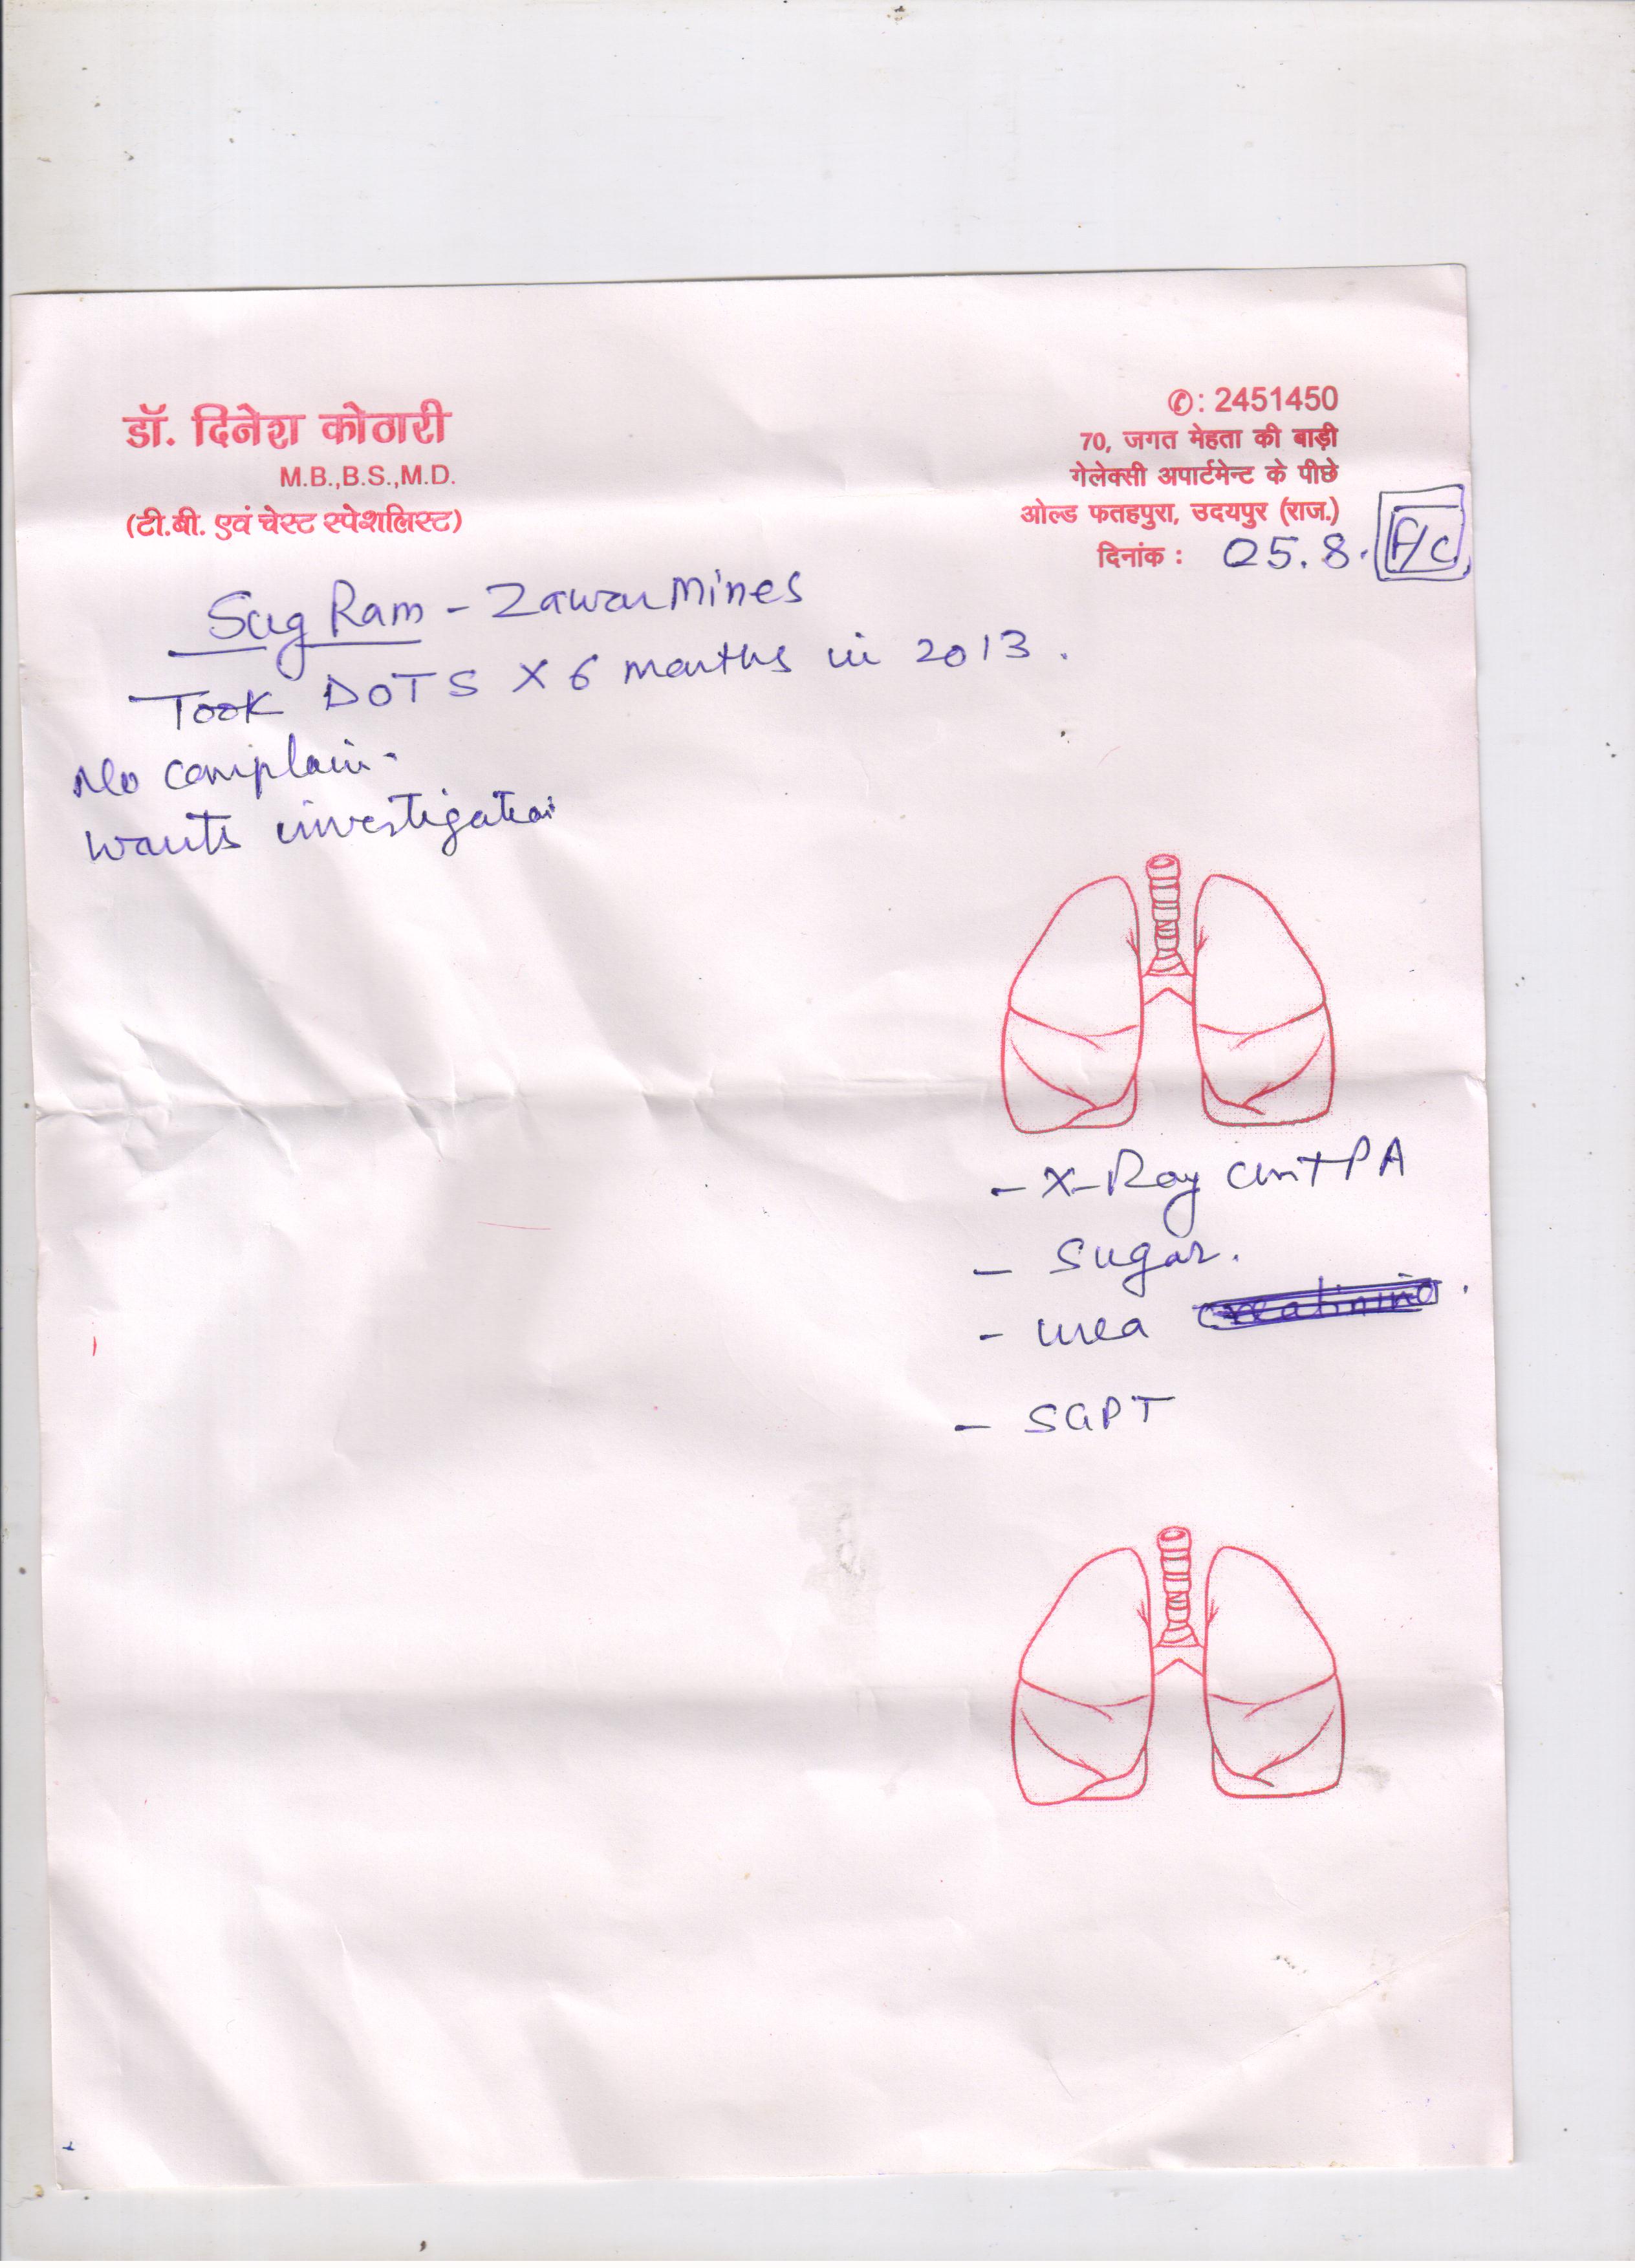 डॉ. दिनेश कोठारी
M.B.,B.S.,M.D.
(टी.बी. एवं चेस्ट स्पेशलिस्ट)
✆: 2451450
70, जगत मेहता की बाड़ी
गेलेक्सी अपार्टमेन्ट के पीछे
ओल्ड फतहपुरा, उदयपुर (राज.)
दिनांक : 05.8. F/C
Ram - Zawar Mines
Took DOTS X 6 months in 2013.
No complain.
Wants investigation
- X-Ray PA
- Sugar.
- Urea creatinine.
- SGPT